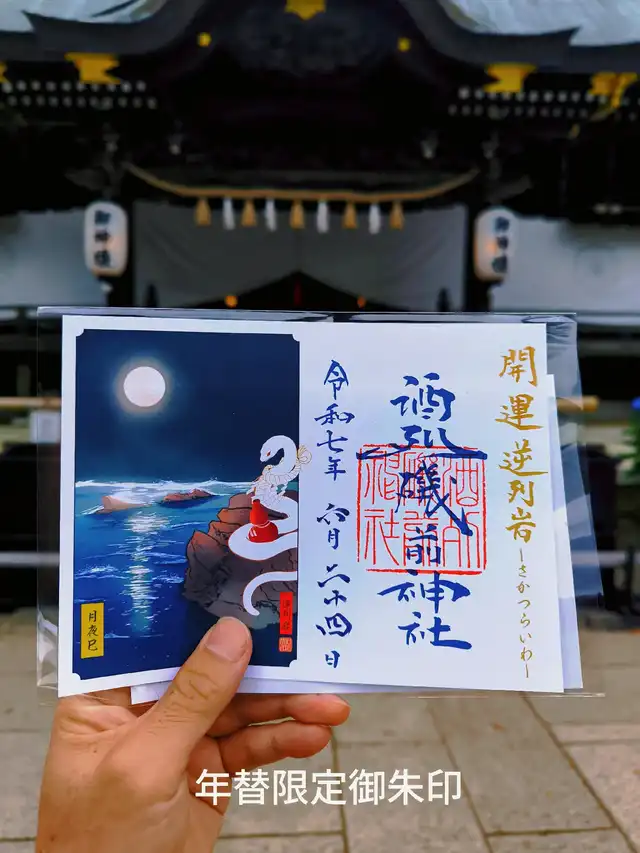 開運 逆列岩 ーさかつらいわー
酒列磯前神社
令和七年 六月二十四日
月夜巳
年替限定御朱印